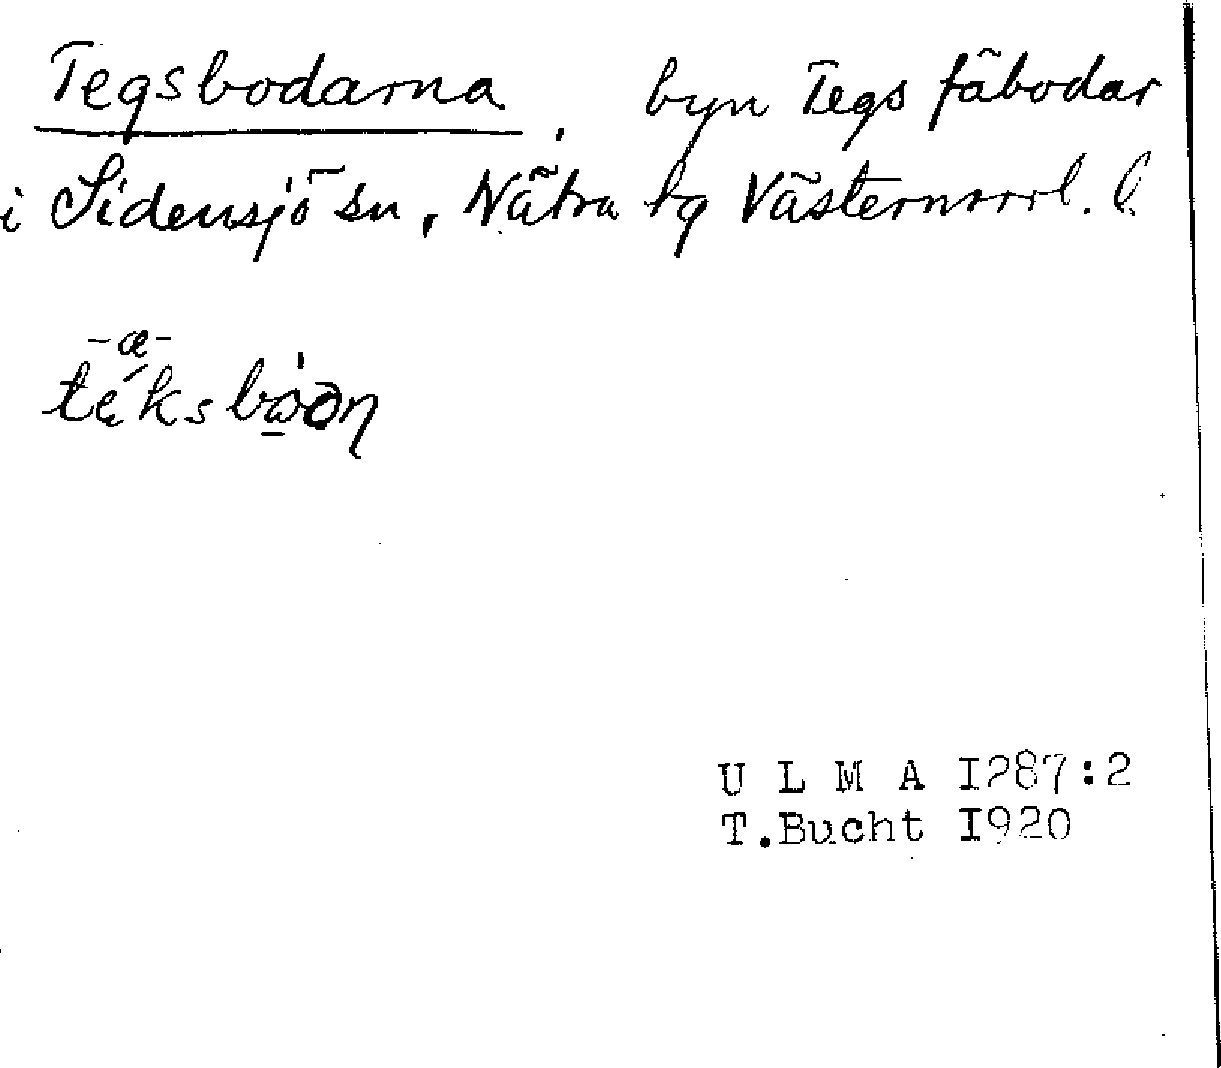 Tegsbodarna. byn Tegs fäbodar
i Sidensjö sn, Nätra tg Västernorrl. l.
-æ-
téksbòɷn
U L M A I287:2
T.Bucht I920